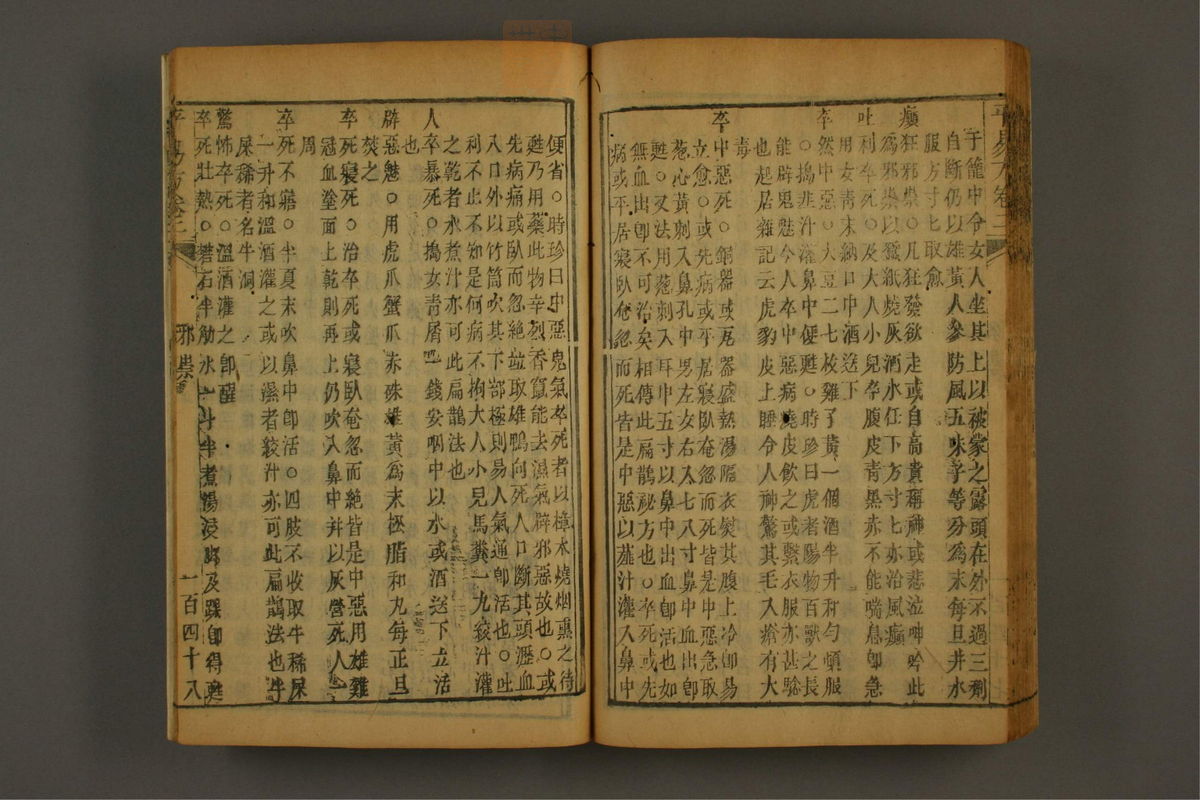 于籠中令女人坐其上以被蒙之露頭在外不過三劑
自斷仍以雄黃人參防風五味子等分為末每旦井水
服方寸匕取愈
癲狂邪祟○凡狂發欲走或自高貴稱神或悲泣呻吟此
為邪祟以蠶紙燒灰酒水任下方寸匕亦治風癲
吐利卒死○及大人小兒卒腹皮青黑赤不能喘息卽急
用女青末納口中酒送下
卒然中惡○大豆二七枚雞子黃一個酒半升和勻頓服
○搗韭汁灌鼻中便甦○時珍曰虎者陽物百獸之長
能辟鬼魅今人卒中惡病燒皮飲之或繫衣服亦甚驗
也起居雜記云虎豹皮上睡令人神驚其毛入瘡有大
毒
卒中惡死○銅器或瓦器盛熱湯隔衣熨其腹上冷卽易
立愈○或先病或平居寢臥奄忽而死皆是中惡急取
葱心黃刺入鼻孔中男左女右入七八寸鼻中血出卽
甦○又法用葱刺入耳中五寸以鼻中出血卽活也如
無血出卽不可治矣相傳此扁鵲秘方也○卒死或先
病或平居寢臥奄忽而死皆是中惡以薤汁灌入鼻中
便省○時珍曰中惡鬼氣卒死者以樟木燒烟熏之待
甦乃用藥此物辛烈香竄能去濕氣辟邪惡故也○或
先病痛或臥而忽絕並取雄鴨向死人口斷其頭瀝血
入口外以竹筒吹其下部極則易人氣通卽活也○吐
利不止不知是何病不拘大人小兒馬糞一丸絞汁灌
之乾者水煮汁亦可此扁鵲法也
人卒暴死○搗女青屑一錢安咽中以水或酒送下立活
也
辟惡魅○用虎爪蟹爪赤珠雄黃為末松脂和丸每正旦
焚之
卒死寢死○治卒死或寢臥奄忽而絕皆是中惡用雄雞
冠血塗面上乾則再上仍吹入鼻中并以灰營死人一
周
卒死不寤○半夏末吹鼻中卽活○四肢不收取牛稀屎
一升和溫酒灌之或以濕者絞汁亦可此扁鵲法也牛
屎稀者名牛洞
驚怖卒死○溫酒灌之卽醒
卒死壯熱○礬石半觔水一斗半煮湯浸腳及踝卽得甦
平易方卷二
邪祟
一百四十八